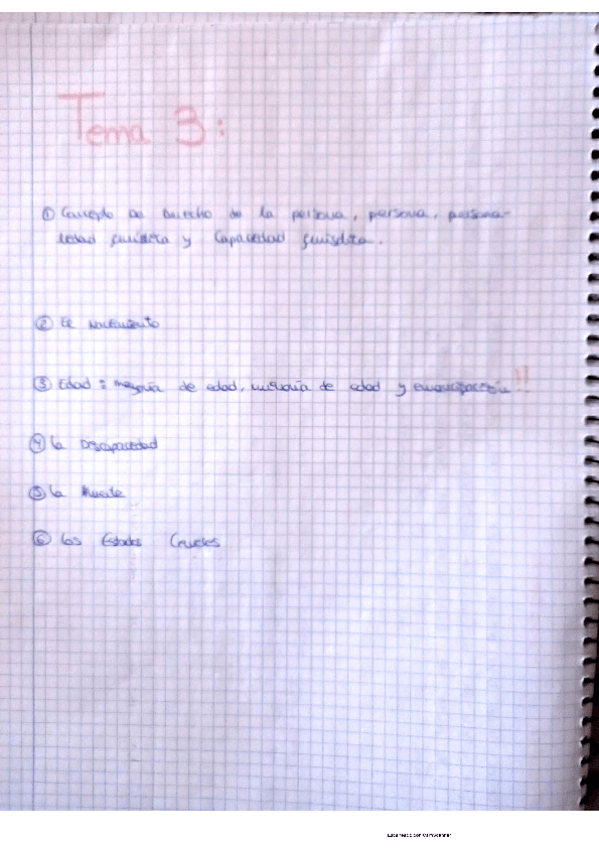 Tema 3:
① Concepto de Derecho de la persona, persona, persona-
lidad jurídica y Capacidad jurídica.
② El nacimiento
③ Edad: mayoría de edad, minoría de edad y emancipación!!
④ La Discapacidad
⑤ La Muerte
⑥ Los Estados Civiles
Escaneado con CamScanner